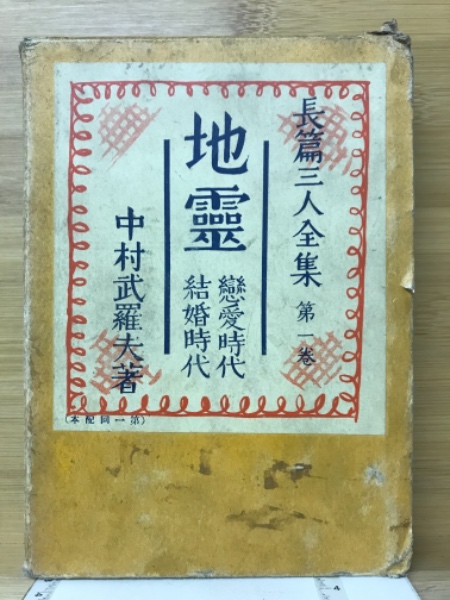 長篇三人全集 第一卷
地靈
戀愛時代
結婚時代
中村武羅夫著
(第一回配本)